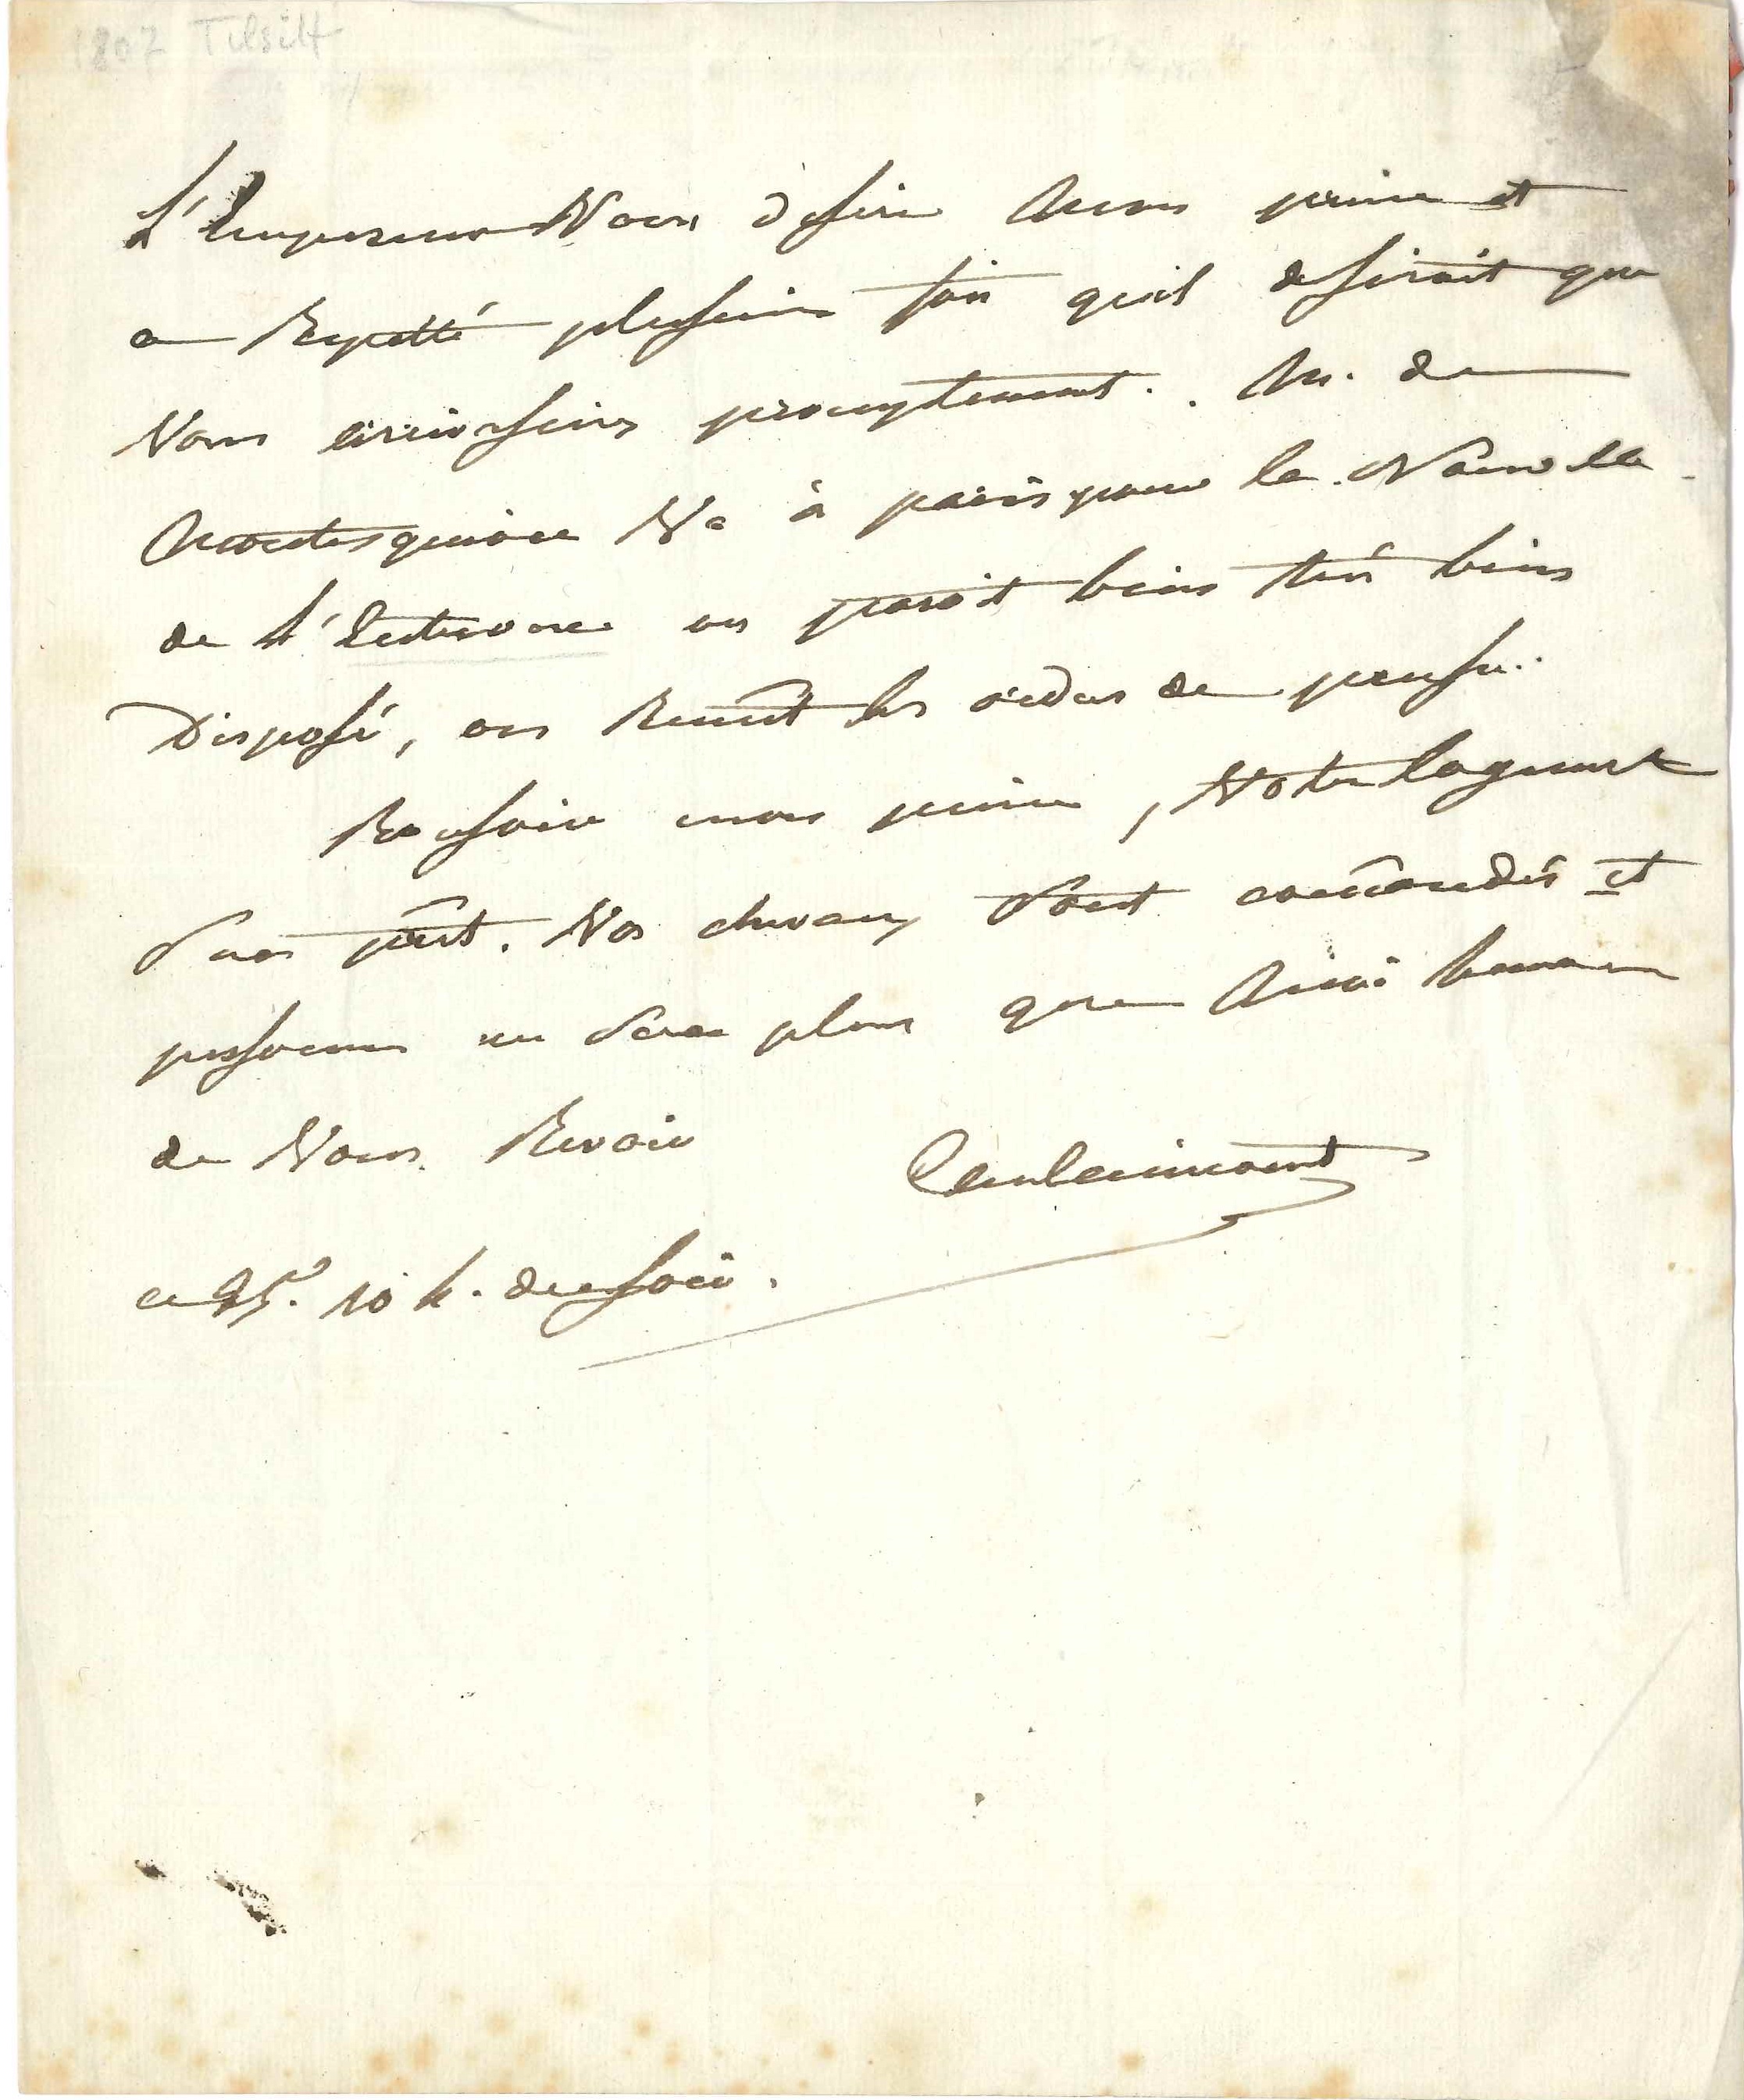 1807 Tilsitt
L'Empereur Vous desire Mon prince et
a Repetté plusieurs fois qu'il desiroit que
Vous arrivassiez promptement. M. de
Montesquiou Va à paris pour la Nouvelle
de L'Entrevue on paroit bien très bien
Disposé, on Remet les idées de
Bonsoir mon prince, Votre logement
Sera prêt. Vos chevaux Sont comandés et
personne ne Sera plus que Moi heureux
de Vous Revoir
Caulaincourt
ce 25. 10 h. du soir.